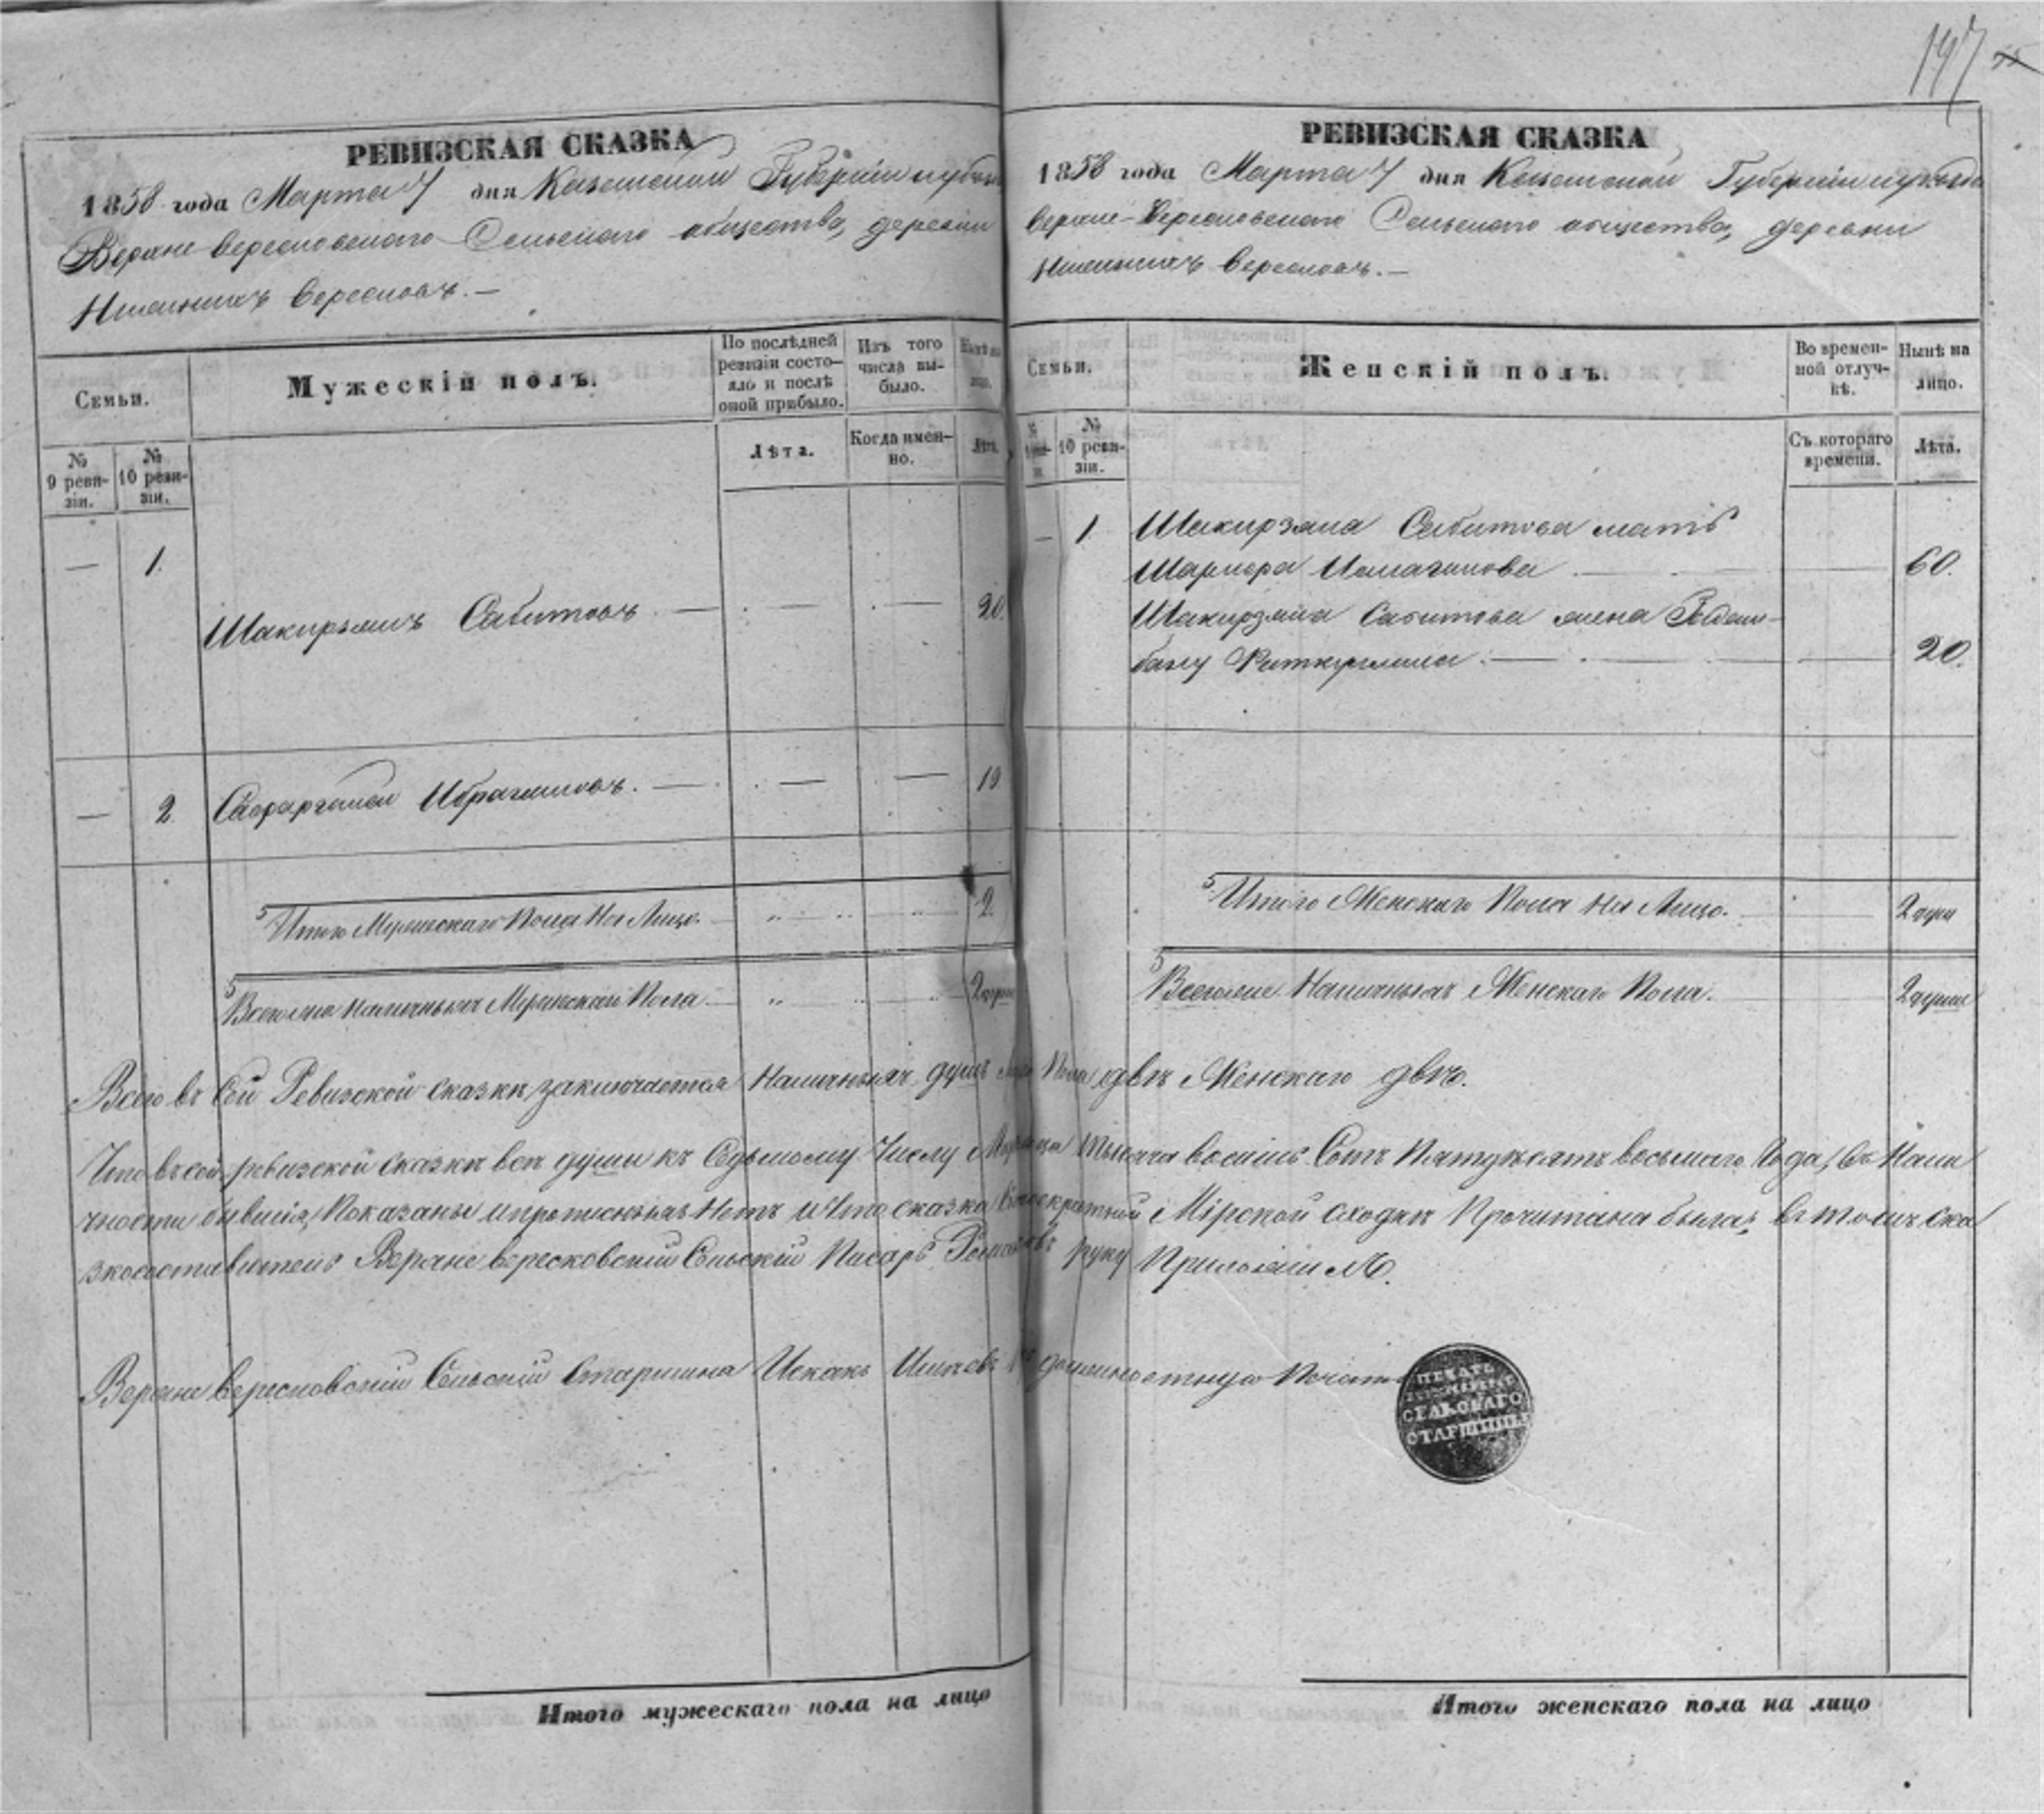 147
РЕВИЗСКАЯ СКАЗКА
1858 года Марта 7 дня Казанской Губерніи
Верхне Вересковскаго Сельскаго общества, деревни
Нижнихъ Вересковъ.—
Семьи.
Мужескій полъ.
По послѣдней ревизіи состо-яло и послѣ оной прибыло.
Изъ того числа вы-было.
Нынѣ на лицо.
№ 9 реви-зіи.
№ 10 реви-зіи.
Лѣта.
Когда имен-но.
Лѣта.
— 1. Шакирзянъ Сабитовъ — — — 20.
— 2 Сафаргалей Ибрагимовъ. — — — 19
Итого Мужескаго Пола На Лицо. 2.
Всего наличныхъ Мужескаго Пола 2 души
РЕВИЗСКАЯ СКАЗКА
1858 года Марта 7 дня Казанской Губерніи
Верхне-Вересковскаго Сельскаго общества, деревни
Нижнихъ Вересковъ.—
Семьи.
Женскій полъ.
Во времен-ной отлуч-кѣ.
Нынѣ на лицо.
№ 10 реви-зіи.
Съ котораго времени.
Лѣта.
— 1. Шакирзяна Сабитова мать
— 60.
Шакирзяна Сабитова жена
бану — 20.
Итого Женскаго Пола На Лицо. 2 души
Всего Наличныхъ Женскаго Пола. 2 души
Всего въ Сей Ревизской сказкѣ заключается Наличныхъ душъ Муж Пола двѣ Женскаго двѣ.
Что въ сей ревизской сказкѣ всѣ души къ Седьмому Числу Марта тысяча восемь Сотъ Пятидесятъ восьмаго Года, въ Нали
чности бывшія, Показаны и прописныхъ Нетъ и Что сказка Мірской сходкѣ Прочитана была, в томъ ска
зкосоставитель Верхне вересковскій Сельскій Писарь руку Приложилъ.
Верхне Вересковскій Сельскій Старшина Искакъ должностную Печать
ПЕЧАТЬ
СЕЛЬСКАГО
СТАРШИНЫ
Итого мужескаго пола на лицо
Итого женскаго пола на лицо